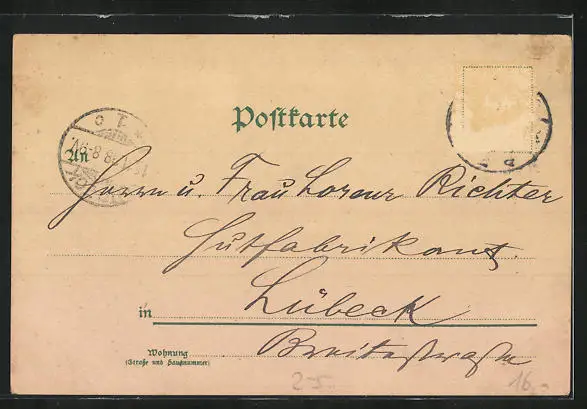 Postkarte
An
Herrn u. Frau Lorenz Richter
Hutfabrikant.
in Lübeck
Wohnung Breitestrasse
(Straße und Hausnummer)